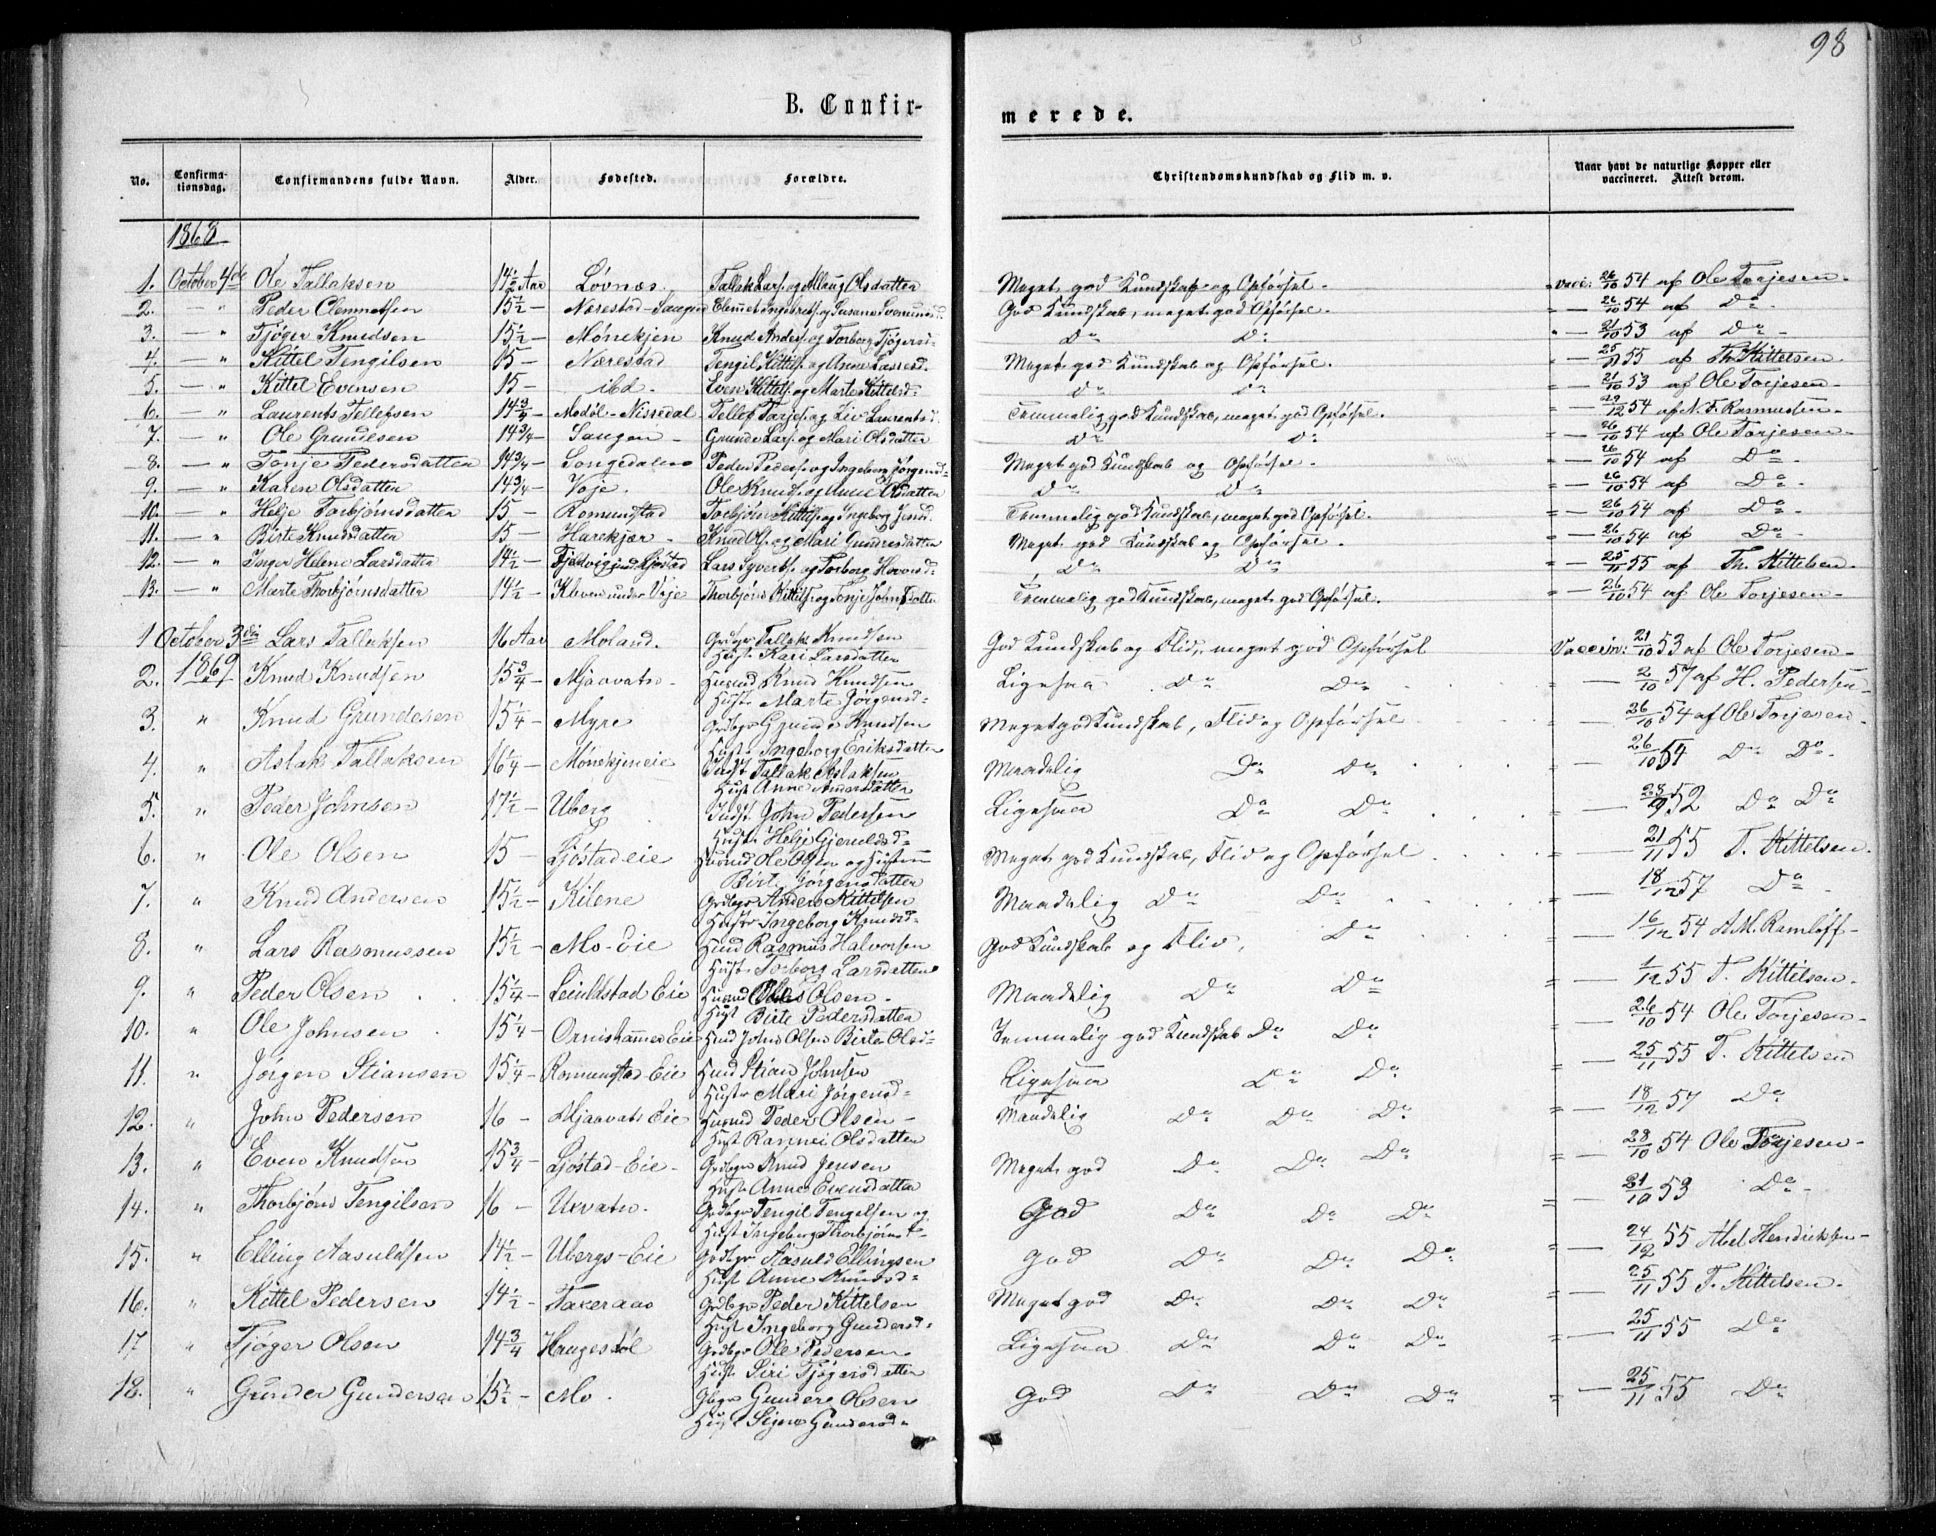 98
B. Confir-
merede.
No. Confirma-tionsdag. Confirmandens fulde Navn. Alder. Fødested. Forældre. Christendomskundskab og Flid m. v. Naar havt de naturlige Kopper eller vaccineret. Attest derom.
1868
1. October 4de Ole Tallaksen 14½ Aar Løvnæs. Tallak Lars. og Aslaug Olsdatter Meget god Kundskab og Opførsel. vacc: 26/10 54 af Ole Torjesen
2. — " Peder Clemmetsen 15½ — Nærestad-Saugen Clemet Ingebrets. og Susane Evensd. God Kundskab, meget god Opførsel. 26/10 54 af Do
3. — " Tjøger Knudsen 15½ — Mønekjen Knud Anders. og Torborg Tjøgersd. Do Do " — 21/10 53 af Do —
4. — " Kittel Tengilsen 15 — Nærestad Tengil Kittils. og Anne Lassesd. Meget god Kundskab og Opførsel. = — 25/11 55 af Th. Kittelsen.
5. — " Kittel Evensen 15 — ibd. Even Kittels. og Marte Kittelsd. Do Do = — 21/10 53 af Ole Torjesen —
6. — " Laurents Tellefsen 14¾ — Nissedal Tellef Tarjes. og Liv Laurentsd. Temmelig god Kundskab, meget god Opførsel. = — 29/12 54 af N. F. Rasmussen —
7. — " Ole Grundesen 14¾ — Saugen — Grunde Lars. og Mari Olsdatter Do Do = — 26/10 54 af Ole Torjesen —
8. — " Tonje Pedersdatter 14¾ — Songedalen Peder Peders. og Ingeborg Jørgensd. Meget god Kundskab og Opførsel. = — 26/10 54 af Do
9. — " Karen Olsdatter 14¾ — Voje. Ole Knuds. og Anne Olsdatter Do Do = — 26/10 54 af Do
10. — " Helje Torbjørnsdatter 15 — Romundstad Torbjørn Kittils. og Ingeborg Jensd. Temmelig god Kundskab, meget god Opførsel. = — 26/10 54 af Do
11. — " Birte Knudsdatter 15 — Harekjær — Knud Ols. og Mari Gundersdatter Meget god Kundskab og Opførsel. = — 26/10 54 af Do
12. — " Inger Helene Larsdatter 14½ — Fjeldvig und. Gjøstad Lars Syverts. og Torborg Hovorsd. Do Do = — 25/11 55 af Th. Kittelsen —
13. — " Marte Thorbjørnsdatter 14½ — Kleven under Voje Thorbjørn Kittils. og Tonje Johnsdatter Temmelig god Kundskab, meget god Opførsel. = — 26/10 54 af Ole Torjesen —
1 October 3die Lars Tallaksen 16 Aar — Moland. Grdbgr Tallak Knudsen God Kundskab og Flid, meget god Opførsel Vaccin: 21/10 53 af Ole Torjesen —
Hust. Kari Larsdatter
2. 1869 Knud Knudsen 15¾ — Mjaavatn. Husmd Knud Knudsen Ligesaa Do Do = — 2/10 57 af H. Pedersen
Hust. Marte Jørgensd.
3. " Knud Grundesen 15¼ — Myre Grdbgr Grunde Knudsen Meget god Kundskab, Flid og Opførsel = — 26/10 54 af Ole Torjesen
Hust. Ingeborg Eriksdatter
4. " Aslak Tallaksen 16¼ — Mønekjeneie Indst. Tallak Aslaksen Maadelig Do Do = — 26/10 54 Do Do
Hust Anne Andersdatter
5. " Peder Johnsen 17½ — Uberg Indst. John Pedersen Ligesaa Do Do = — 28/9 52 Do Do
Hust. Helje Gjeruldsd
6. " Ole Olsen 15 — Gjøstadeie Husmd Ole Olsen og Hustru Meget god Kundskab, Flid og Opførsel = — 21/11 55 T. Kittelsen
Birte Jørgensdatter
7. " Knud Andersen 15½ — Kilene Grdbgr Anders Kittelsen Maadelig Do Do = — 18/12 57 Do
Hustr Ingeborg Knudsd.
8. " Lars Rasmussen 15½ — Mo-Eie Husmd Rasmus Halvorsen God Kundskab og Flid, Do = — 16/12 54 A. M. Ramløff —
Hust. Torborg Larsdatter
9. " Peder Olsen 15¼ — Leiulstad Eie Husmd Ole Olsen. Maadelig Do Do = — 1/12 55 T. Kittelsen.
Hust Birte Pedersdatter
10. " Ole Johnsen 15¼ — Ornishammer Eie Husmd John Olsen Birte Olsd. Temmelig god Kundskab Do Do = — 26/10 54 Ole Torjesen
11. " Jørgen Stiansen 15¼ — Romundstad-Eie Husmd Stian Johnsen Ligesaa Do Do = — 25/11 55 T. Kittelsen
Hustr Mari Jørgensd.
12. " John Pedersen 16 — Mjaavats Eie Husmd Peder Olsen — Maadelig Do Do Do = — 18/12 57 Do
Hust Rannei Olsdatter
13. " Even Knudsen 15¾ — Gjøstad-Eie — Grdbgr Knud Jensen Meget god Do Do Do = — 28/10 54 Ole Torjesen —
Hust. Anne Evensdatter
14. " Thorbjørn Tengilsen 16 — Uxvatn. Grdbgr Tengil Tengilsen og God Do Do Do = — 21/10 53 Do
Hust Ingeborg Thorbjørnsd.
15. " Elling Aasuldsen 14½ — Ubergs-Eie Grdbgr Aasuld Ellingsen God Do Do Do = — 24/12 55 Abel Hendriksen —
Hust Anne Knudsd.
16. " Kittel Pedersen 14½ — Taxeraas Grdbgr Peder Kittelsen Meget god Do Do Do = — 25/11 55 T. Kittelsen.
Hust Ingeborg Gundersd.
17 " Tjøger Olsen 14¾ — Haugestøl Grdbgr Ole Pedersen Ligesaa Do Do Do = — 25/11 55 Do
Hust Siri Tjøgersdatter
18. " Gunder Gundersen 15½ — Mo. Gbgr Gunder Olsen God Do Do Do = — 25/11 55 Do
Hust Signe Gundersd.